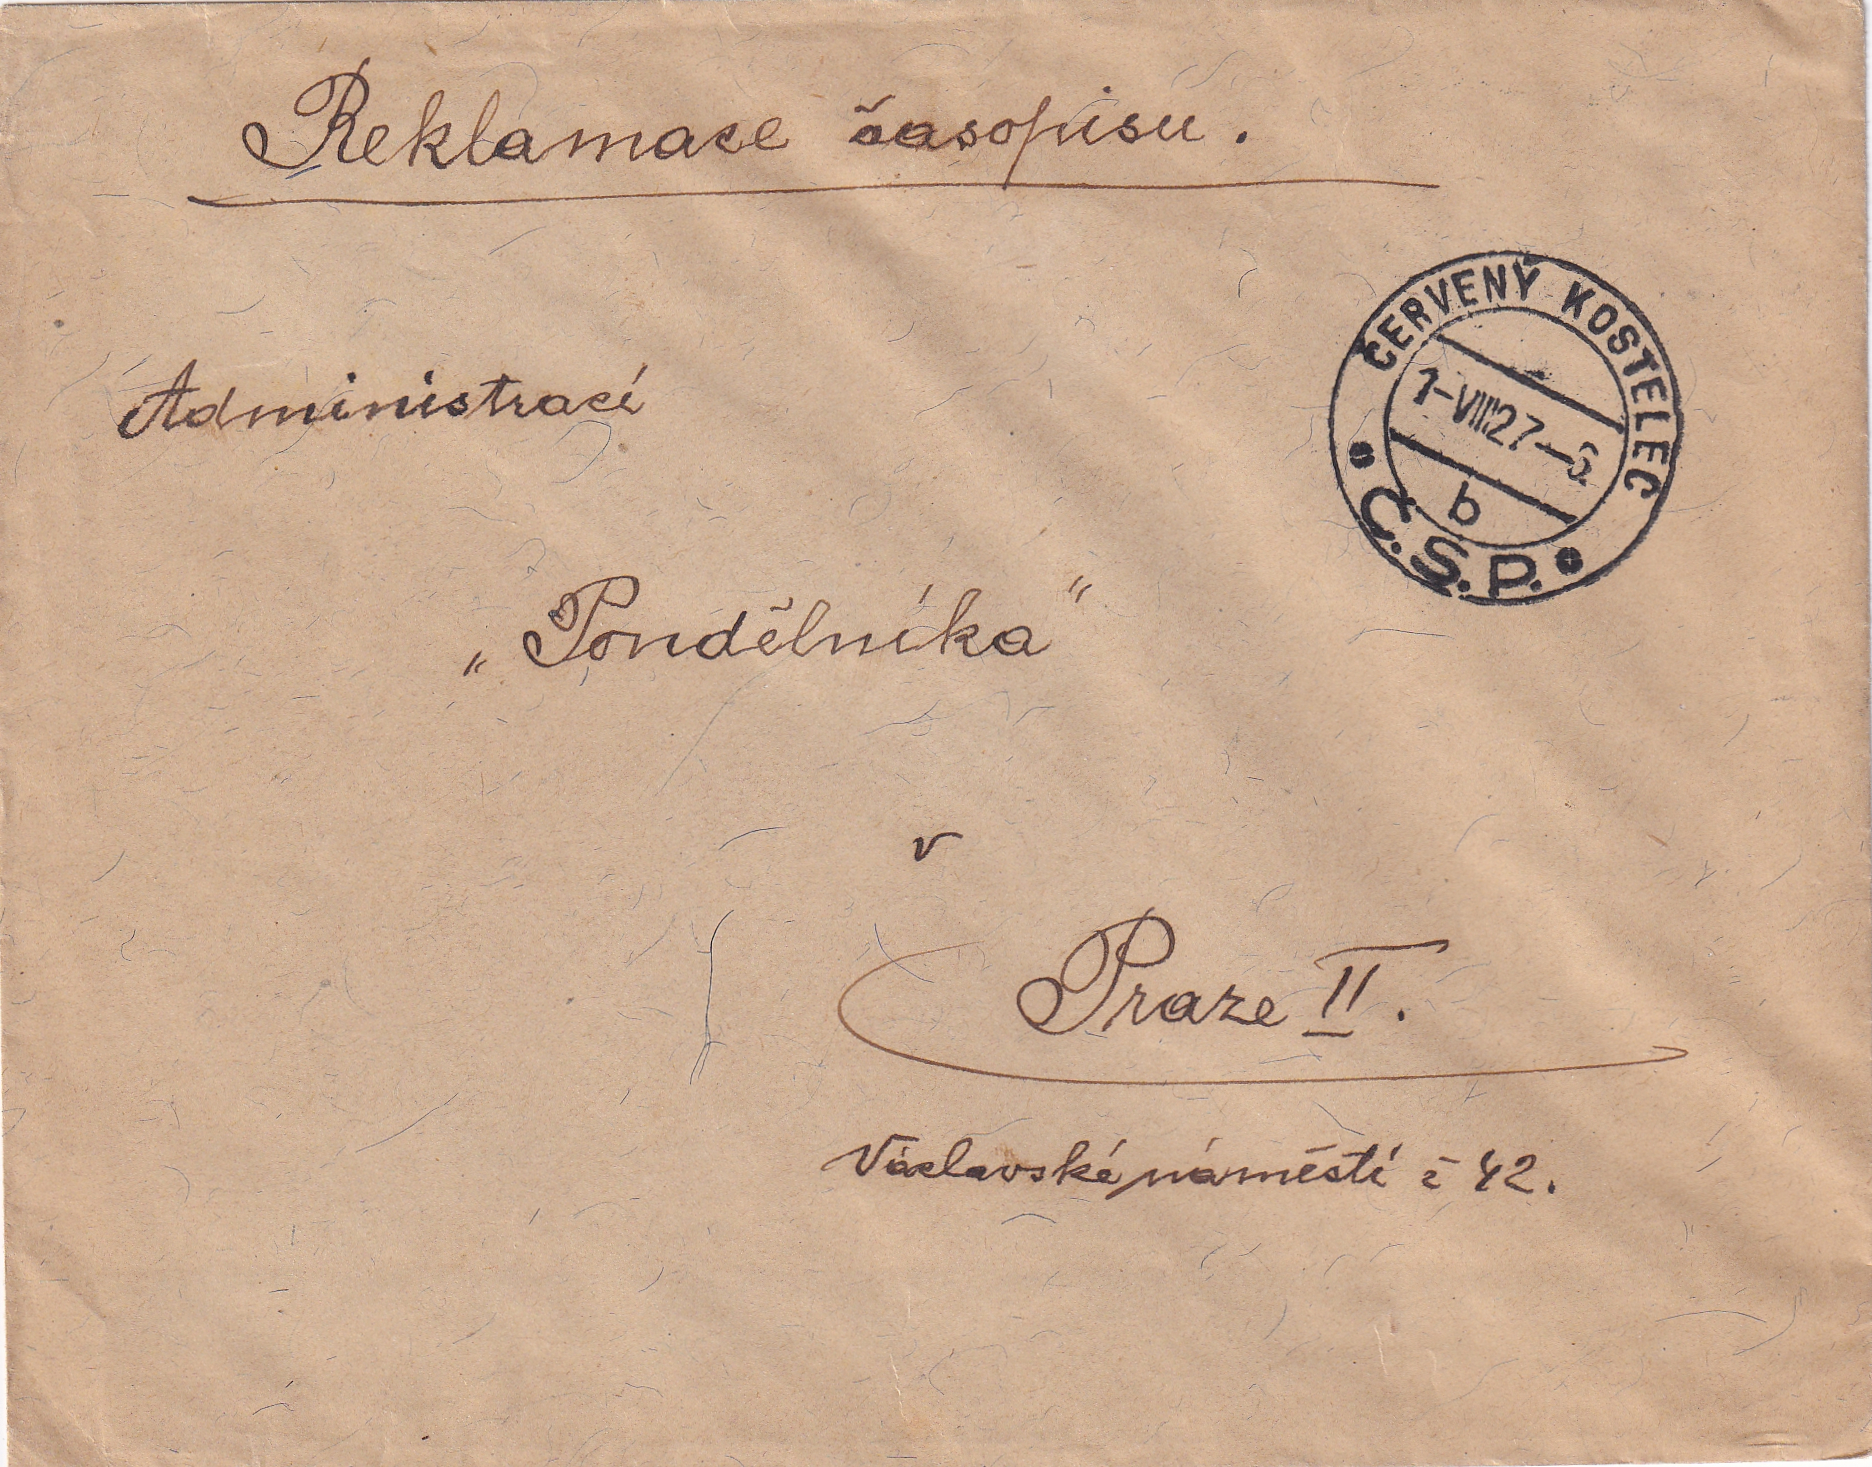 Reklamace časopisu.
ČERVENÝ KOSTELEC
1-VIII27-6
b
Č.S.P.
Administrací
„Pondělníka“
v
Praze II.
Václavské náměstí č 42.